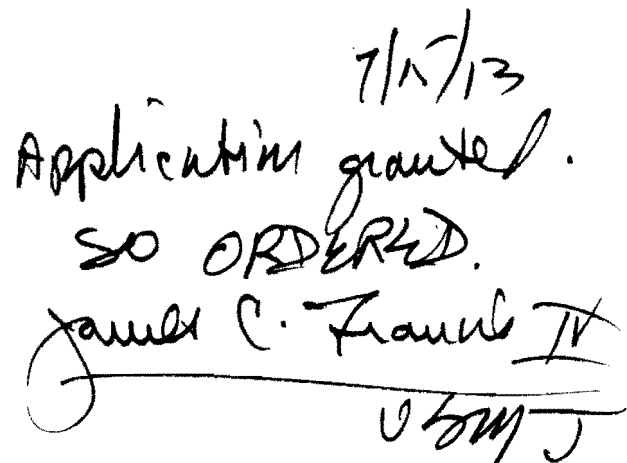 7/15/13
Application granted.
SO ORDERED.
James C. Francis IV
USMJ